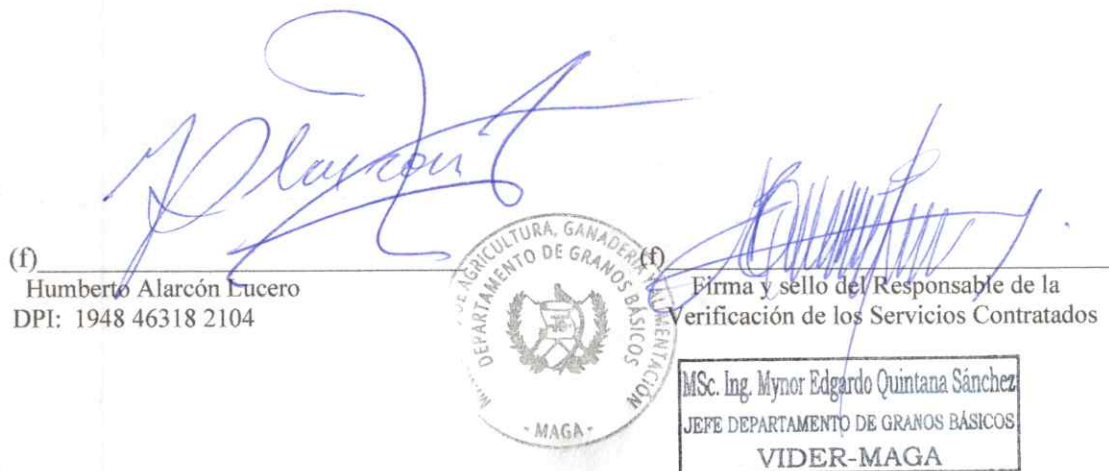 Alarcon
(f)
Humberto Alarcón Lucero
DPI: 1948 46318 2104
DE AGRICULTURA, GANADERIA Y ALIMENTACIÓN
DEPARTAMENTO DE GRANOS BÁSICOS
- MAGA -
(f)
Firma y sello del Responsable de la
Verificación de los Servicios Contratados
MSc. Ing. Mynor Edgardo Quintana Sánchez
JEFE DEPARTAMENTO DE GRANOS BÁSICOS
VIDER-MAGA